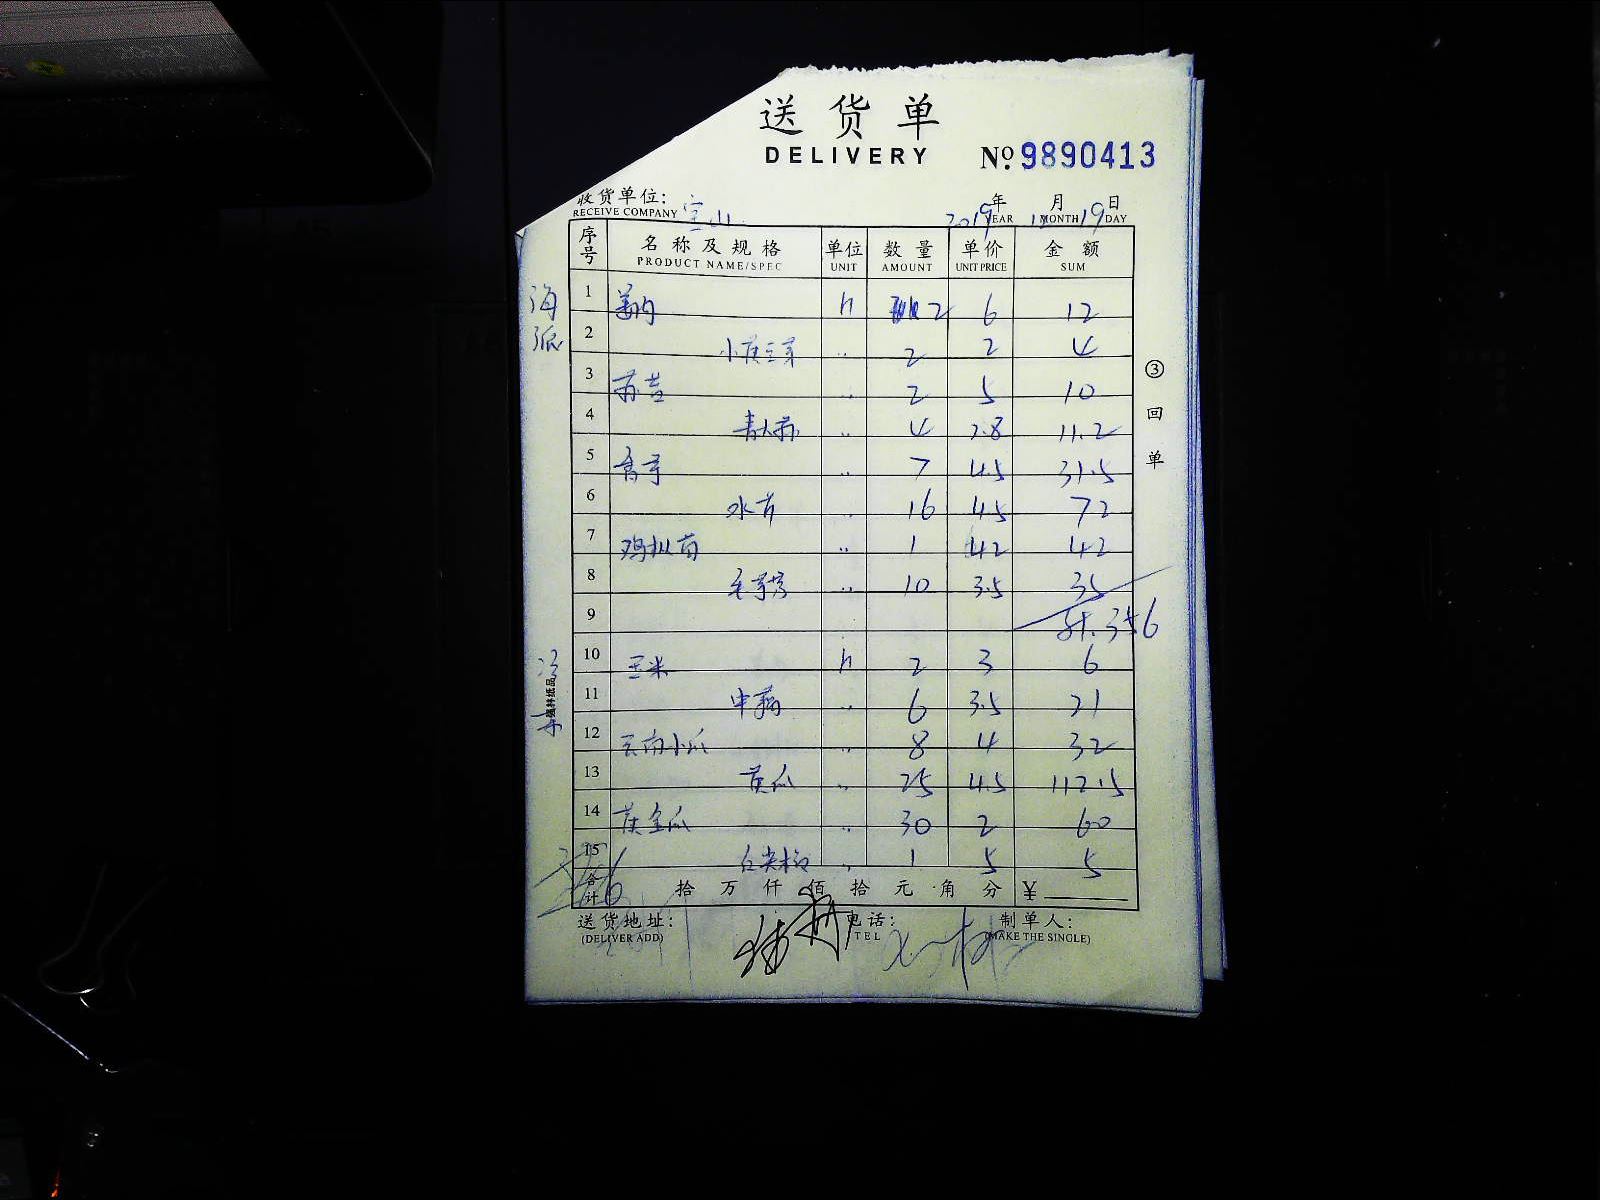 送货单
DELIVERY
№ 9890413
收货单位: 宝山
RECEIVE COMPANY
2019年 12月 19日
YEAR MONTH DAY
序号 名称及规格 单位 数量 单价 金额
PRODUCT NAME/SPEC UNIT AMOUNT UNIT PRICE SUM
海派
1 姜肉 斤 2 6 12
2 小黄豆芽 〃 2 2 4
3 〃 2 5 10
4 青大蒜 〃 4 2.8 11.2
5 香芋 〃 7 4.5 31.5
6 水芹 〃 16 4.5 72
7 鸡枞菌 〃 1 42 42
8 毛芋艿 〃 10 3.5 35
9
10 玉米 斤 2 3 6
11 中藕 〃 6 3.5 21
12 云南小瓜 〃 8 4 32
13 黄瓜 〃 25 4.5 112.5
14 黄金瓜 〃 30 2 60
15 〃 1 5 5
合计 拾 万 仟 佰 拾 元 角 分 ¥
送货地址: 电话: 制单人:
(DELIVER ADD) TEL (MAKE THE SINGLE)
③回单
强林纸品